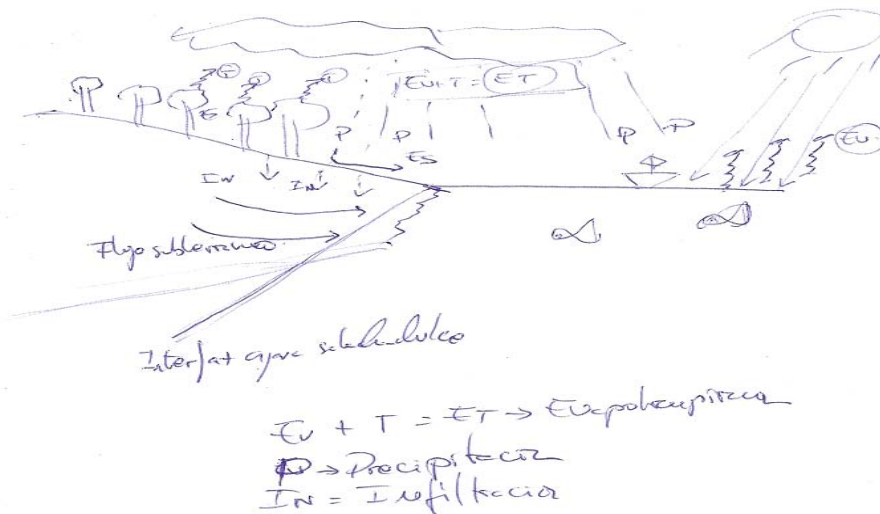 T
Ev+T = ET
P
P
P
P
Ev
ES
IN
IN
Flujo subterraneo
Interfaz agua salada-dulce
Ev + T = ET → Evapotranspiracion
P → Precipitacion
IN = Infiltracion